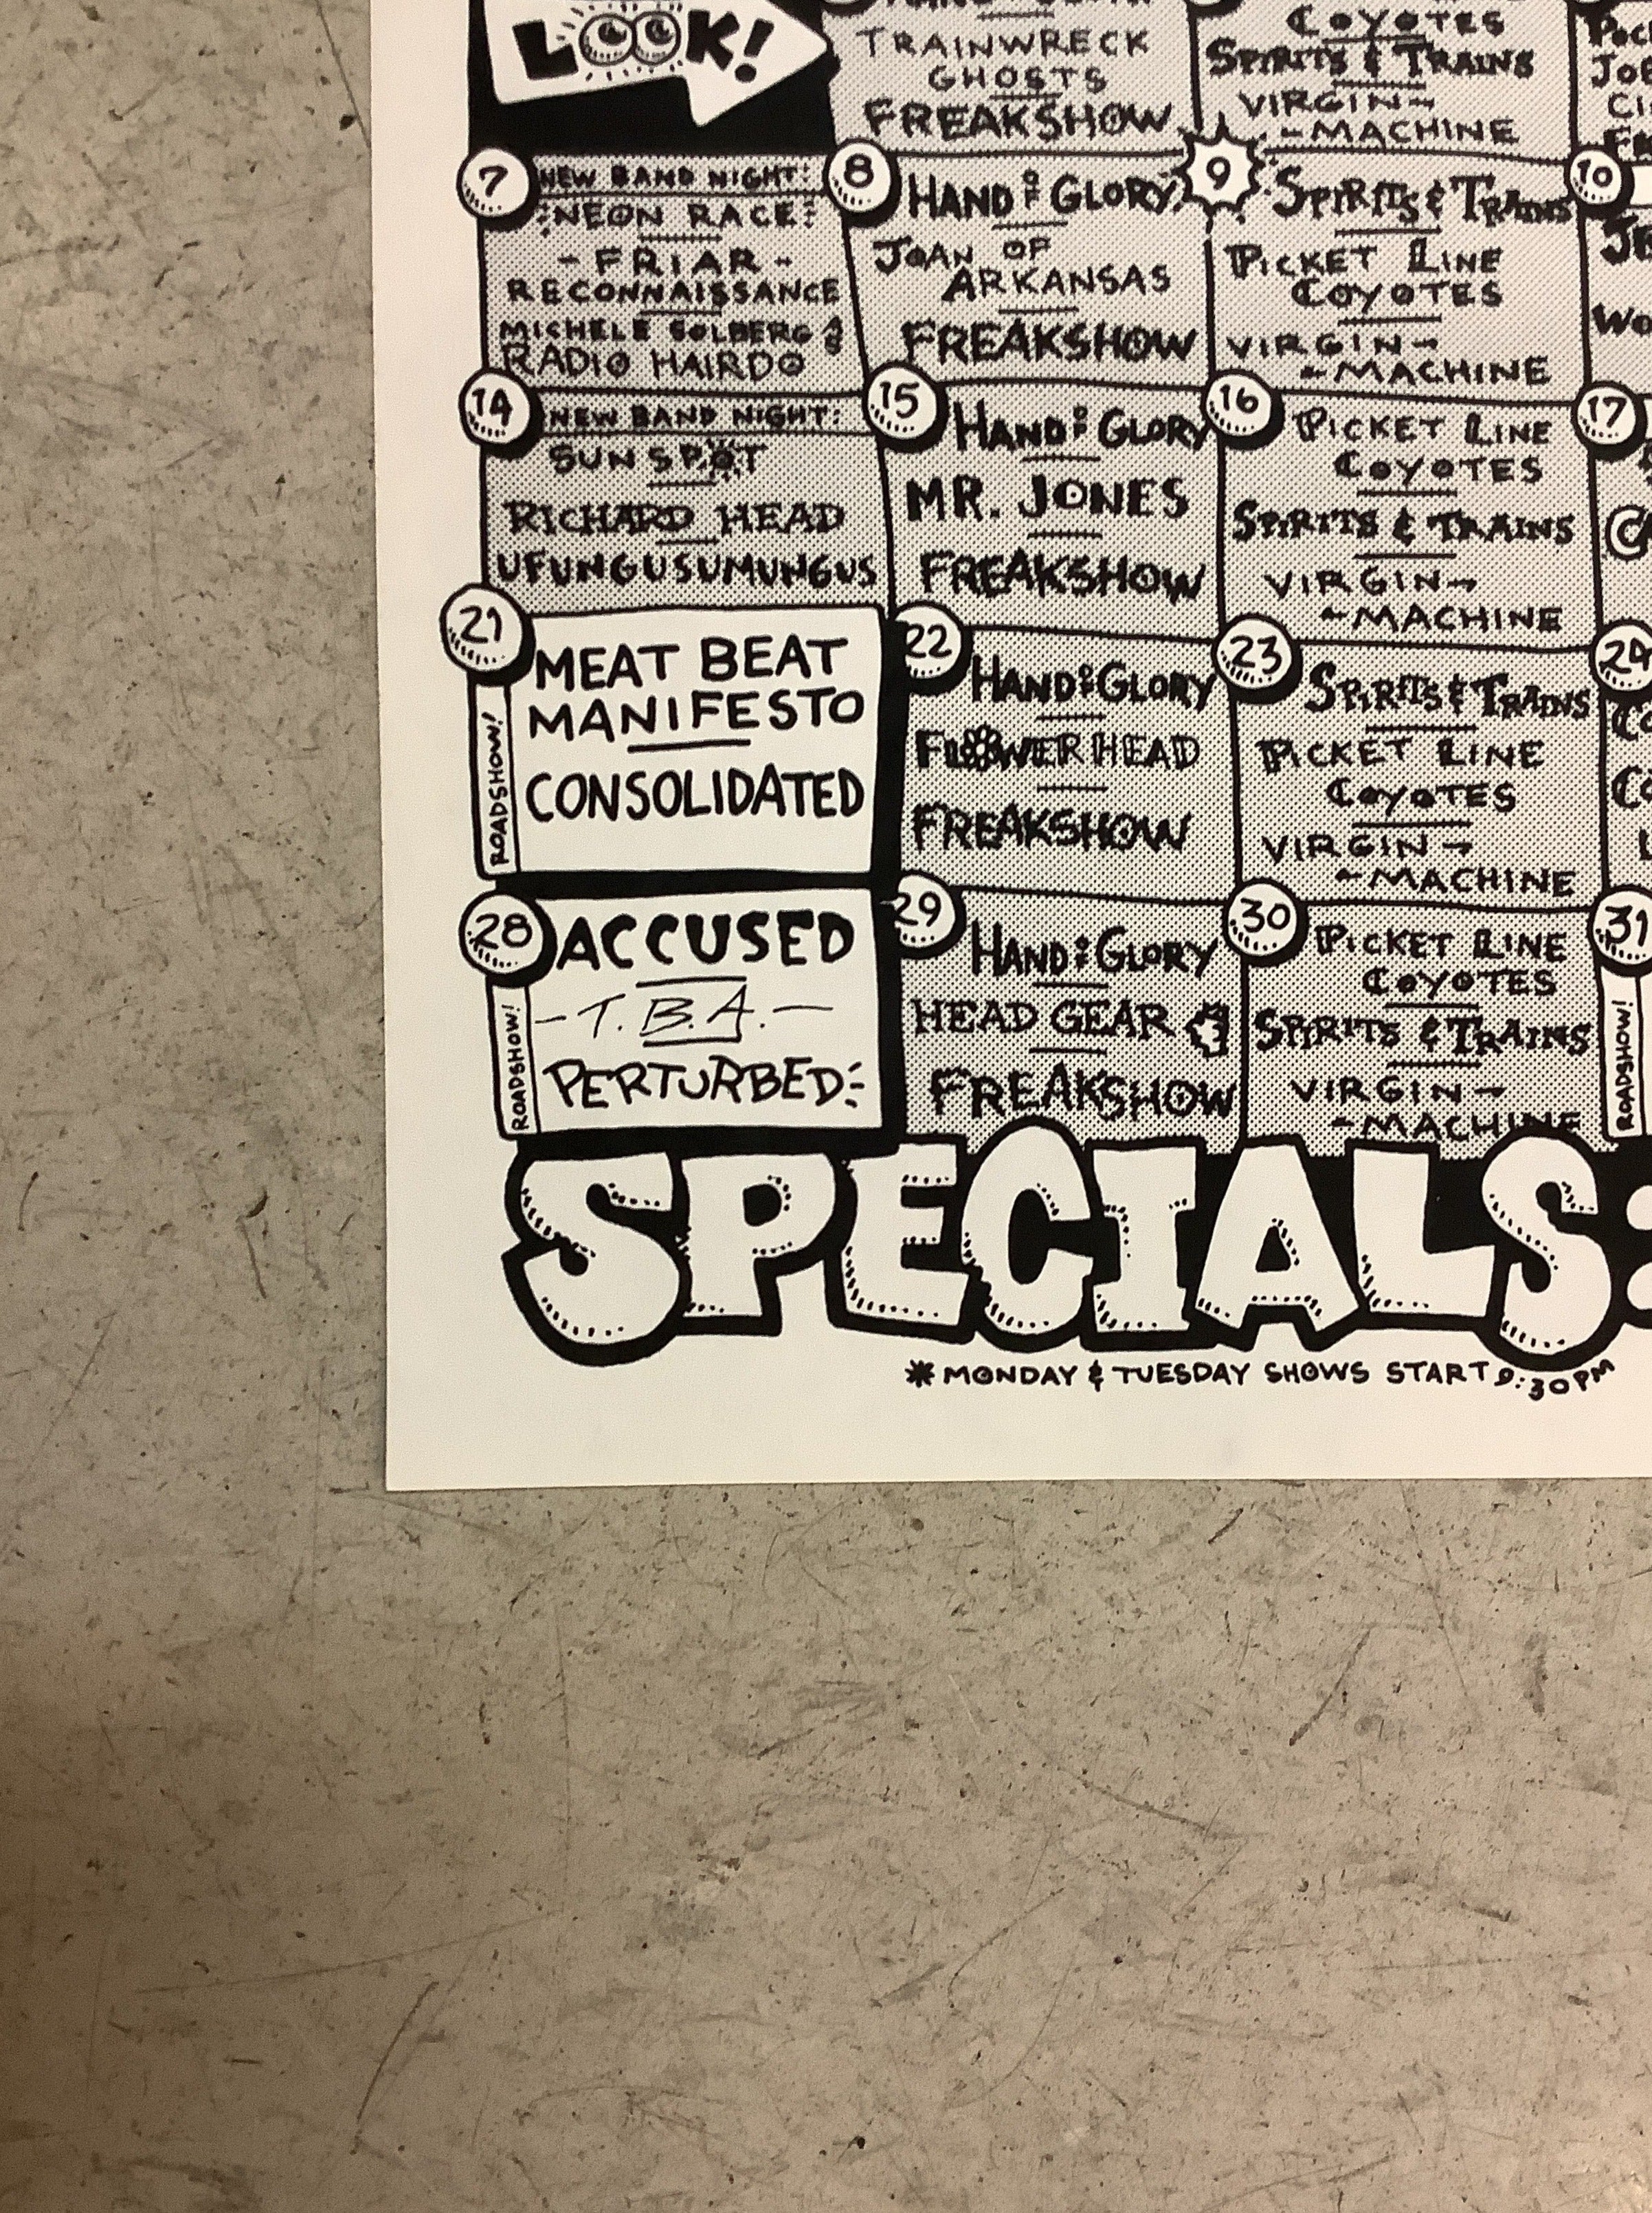 LOOK!
TRAINWRECK
GHOSTS
FREAKSHOW
COYOTES
SPIRITS & TRAINS
VIRGIN-
-MACHINE
7
NEW BAND NIGHT:
NEON RACE
- FRIAR -
RECONNAISSANCE
MICHELE SOLBERG &
RADIO HAIRDO
8
HAND OF GLORY
JOAN OF
ARKANSAS
FREAKSHOW
9
SPIRITS & TRAINS
PICKET LINE
COYOTES
VIRGIN-
-MACHINE
10
14
NEW BAND NIGHT:
SUN SPOT
RICHARD HEAD
UFUNGUSUMUNGUS
15
HAND OF GLORY
MR. JONES
FREAKSHOW
16
PICKET LINE
COYOTES
SPIRITS & TRAINS
VIRGIN-
-MACHINE
17
21
ROADSHOW!
MEAT BEAT
MANIFESTO
CONSOLIDATED
22
HAND OF GLORY
FLOWER HEAD
FREAKSHOW
23
SPIRITS & TRAINS
PICKET LINE
COYOTES
VIRGIN-
-MACHINE
24
28
ROADSHOW!
ACCUSED
-T.B.A.-
PERTURBED
29
HAND OF GLORY
HEAD GEAR
FREAKSHOW
30
PICKET LINE
COYOTES
SPIRITS & TRAINS
VIRGIN-
-MACHINE
31
ROADSHOW!
SPECIALS:
* MONDAY & TUESDAY SHOWS START 9:30PM